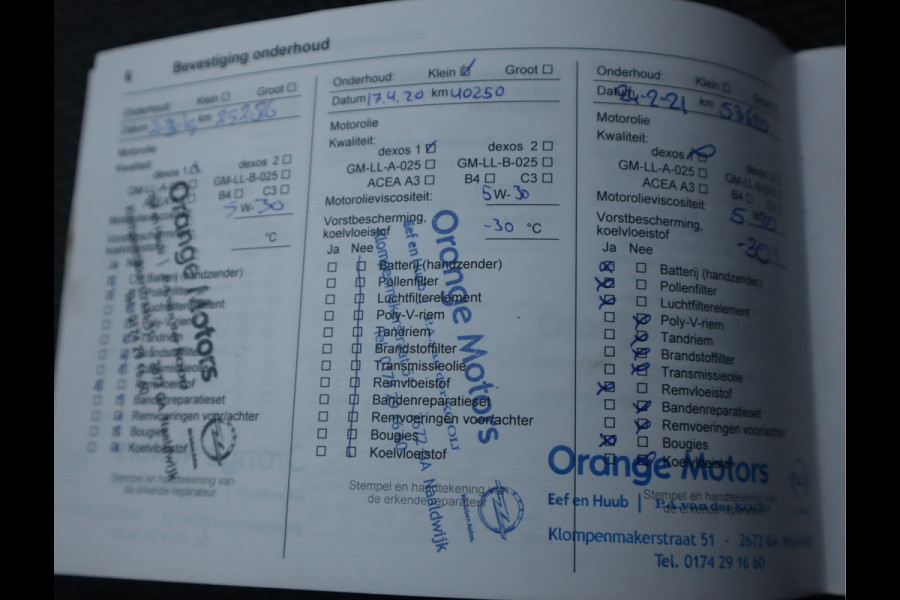 8 Bevestiging onderhoud
Onderhoud: Klein Groot
Datum km 25286
Motorolie
Kwaliteit:
dexos 1 dexos 2
GM-LL-A-025 GM-LL-B-025
ACEA A3 B4 C3
5 W-30
°C
Ja Nee
Batterij (handzender)
Pollenfilter
Luchtfilterelement
Poly-V-riem
Tandriem
Brandstoffilter
Transmissieolie
Remvloeistof
Bandenreparatieset
Remvoeringen voor/achter
Bougies
Koelvloeistof
Stempel en handtekening van
de erkende reparateur
Orange Motors
2672 GA Naaldwijk
Onderhoud: Klein Groot
Datum 17.4.20 km 40250
Motorolie
Kwaliteit:
dexos 1 dexos 2
GM-LL-A-025 GM-LL-B-025
ACEA A3 B4 C3
Motorolieviscositeit: 5 W-30
Vorstbescherming,
koelvloeistof -30 °C
Ja Nee
Batterij (handzender)
Pollenfilter
Luchtfilterelement
Poly-V-riem
Tandriem
Brandstoffilter
Transmissieolie
Remvloeistof
Bandenreparatieset
Remvoeringen voor/achter
Bougies
Koelvloeistof
Stempel en handtekening van
de erkende reparateur
Orange Motors
Eef en Huub
Klompenmakerstraat 51 2672 GA Naaldwijk
Onderhoud: Klein
Datum 24-2-21 km
Motorolie
Kwaliteit:
dexos 1 dexos 2
GM-LL-A-025 GM-LL-B-025
ACEA A3 B4 C3
Motorolieviscositeit: 5
Vorstbescherming,
koelvloeistof -30
Ja Nee
Batterij (handzender)
Pollenfilter
Luchtfilterelement
Poly-V-riem
Tandriem
Brandstoffilter
Transmissieolie
Remvloeistof
Bandenreparatieset
Remvoeringen voor/achter
Bougies
Koelvloeistof
Stempel en handtekening
de erkende
Orange Motors
Eef en Huub | P.A. van der KOOIJ
Klompenmakerstraat 51 · 2672 GA
Tel. 0174 29 16 60